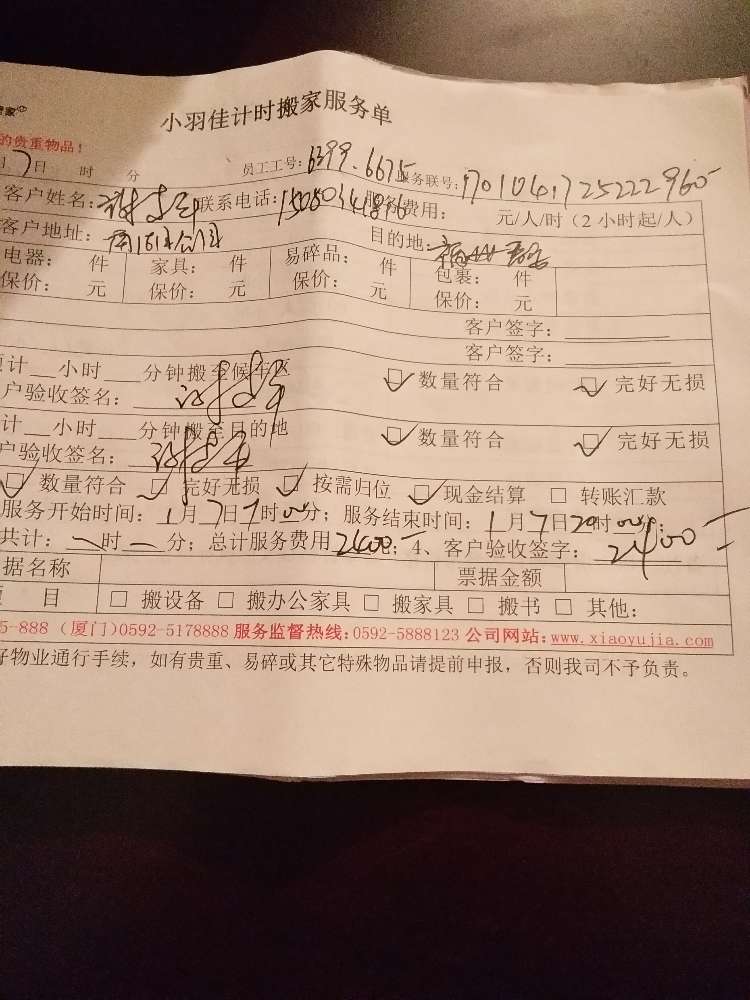 小羽佳计时搬家服务单
的贵重物品！
月7日 时 分 员工工号：6399.6675 服务联号：
客户姓名： 联系电话： 服务费用： 元/人/时（2小时起/人）
客户地址： 目的地：
电器： 件 家具： 件 易碎品： 件 包裹： 件
保价： 元 保价： 元 保价： 元 保价： 元
客户签字：
客户签字：
计__小时__分钟搬至候车区 ☑数量符合 ☑完好无损
户验收签名：
计__小时__分钟搬至目的地 ☑数量符合 ☑完好无损
户验收签名：
☑数量符合 ☑完好无损 ☑按需归位 ☑现金结算 □转账汇款
服务开始时间：1月7日 时00分；服务结束时间：1月7日20时
共计： 时 分；总计服务费用2400；4、客户验收签字：2400
据名称 票据金额
目 □搬设备 □搬办公家具 □搬家具 □搬书 □其他：
5-888（厦门）0592-5178888 服务监督热线：0592-5888123 公司网站：www.xiaoyujia.com
好物业通行手续，如有贵重、易碎或其它特殊物品请提前申报，否则我司不予负责。